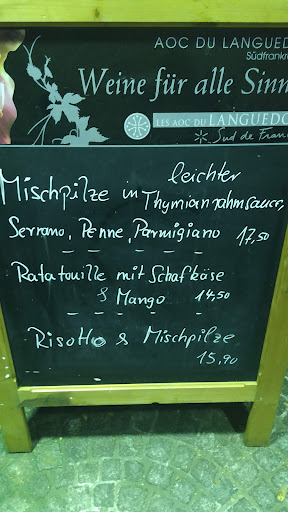 AOC DU LANGUED
Südfrankr
Weine für alle Sinn
LES AOC DU LANGUEDO
Sud de Fran
leichter
Mischpilze in Thymianrahmsauce,
Serrano, Penne, Parmigiano 17,50
Ratatouille mit Schafkäse
& Mango 14,50
Risotto & Mischpilze
15,90